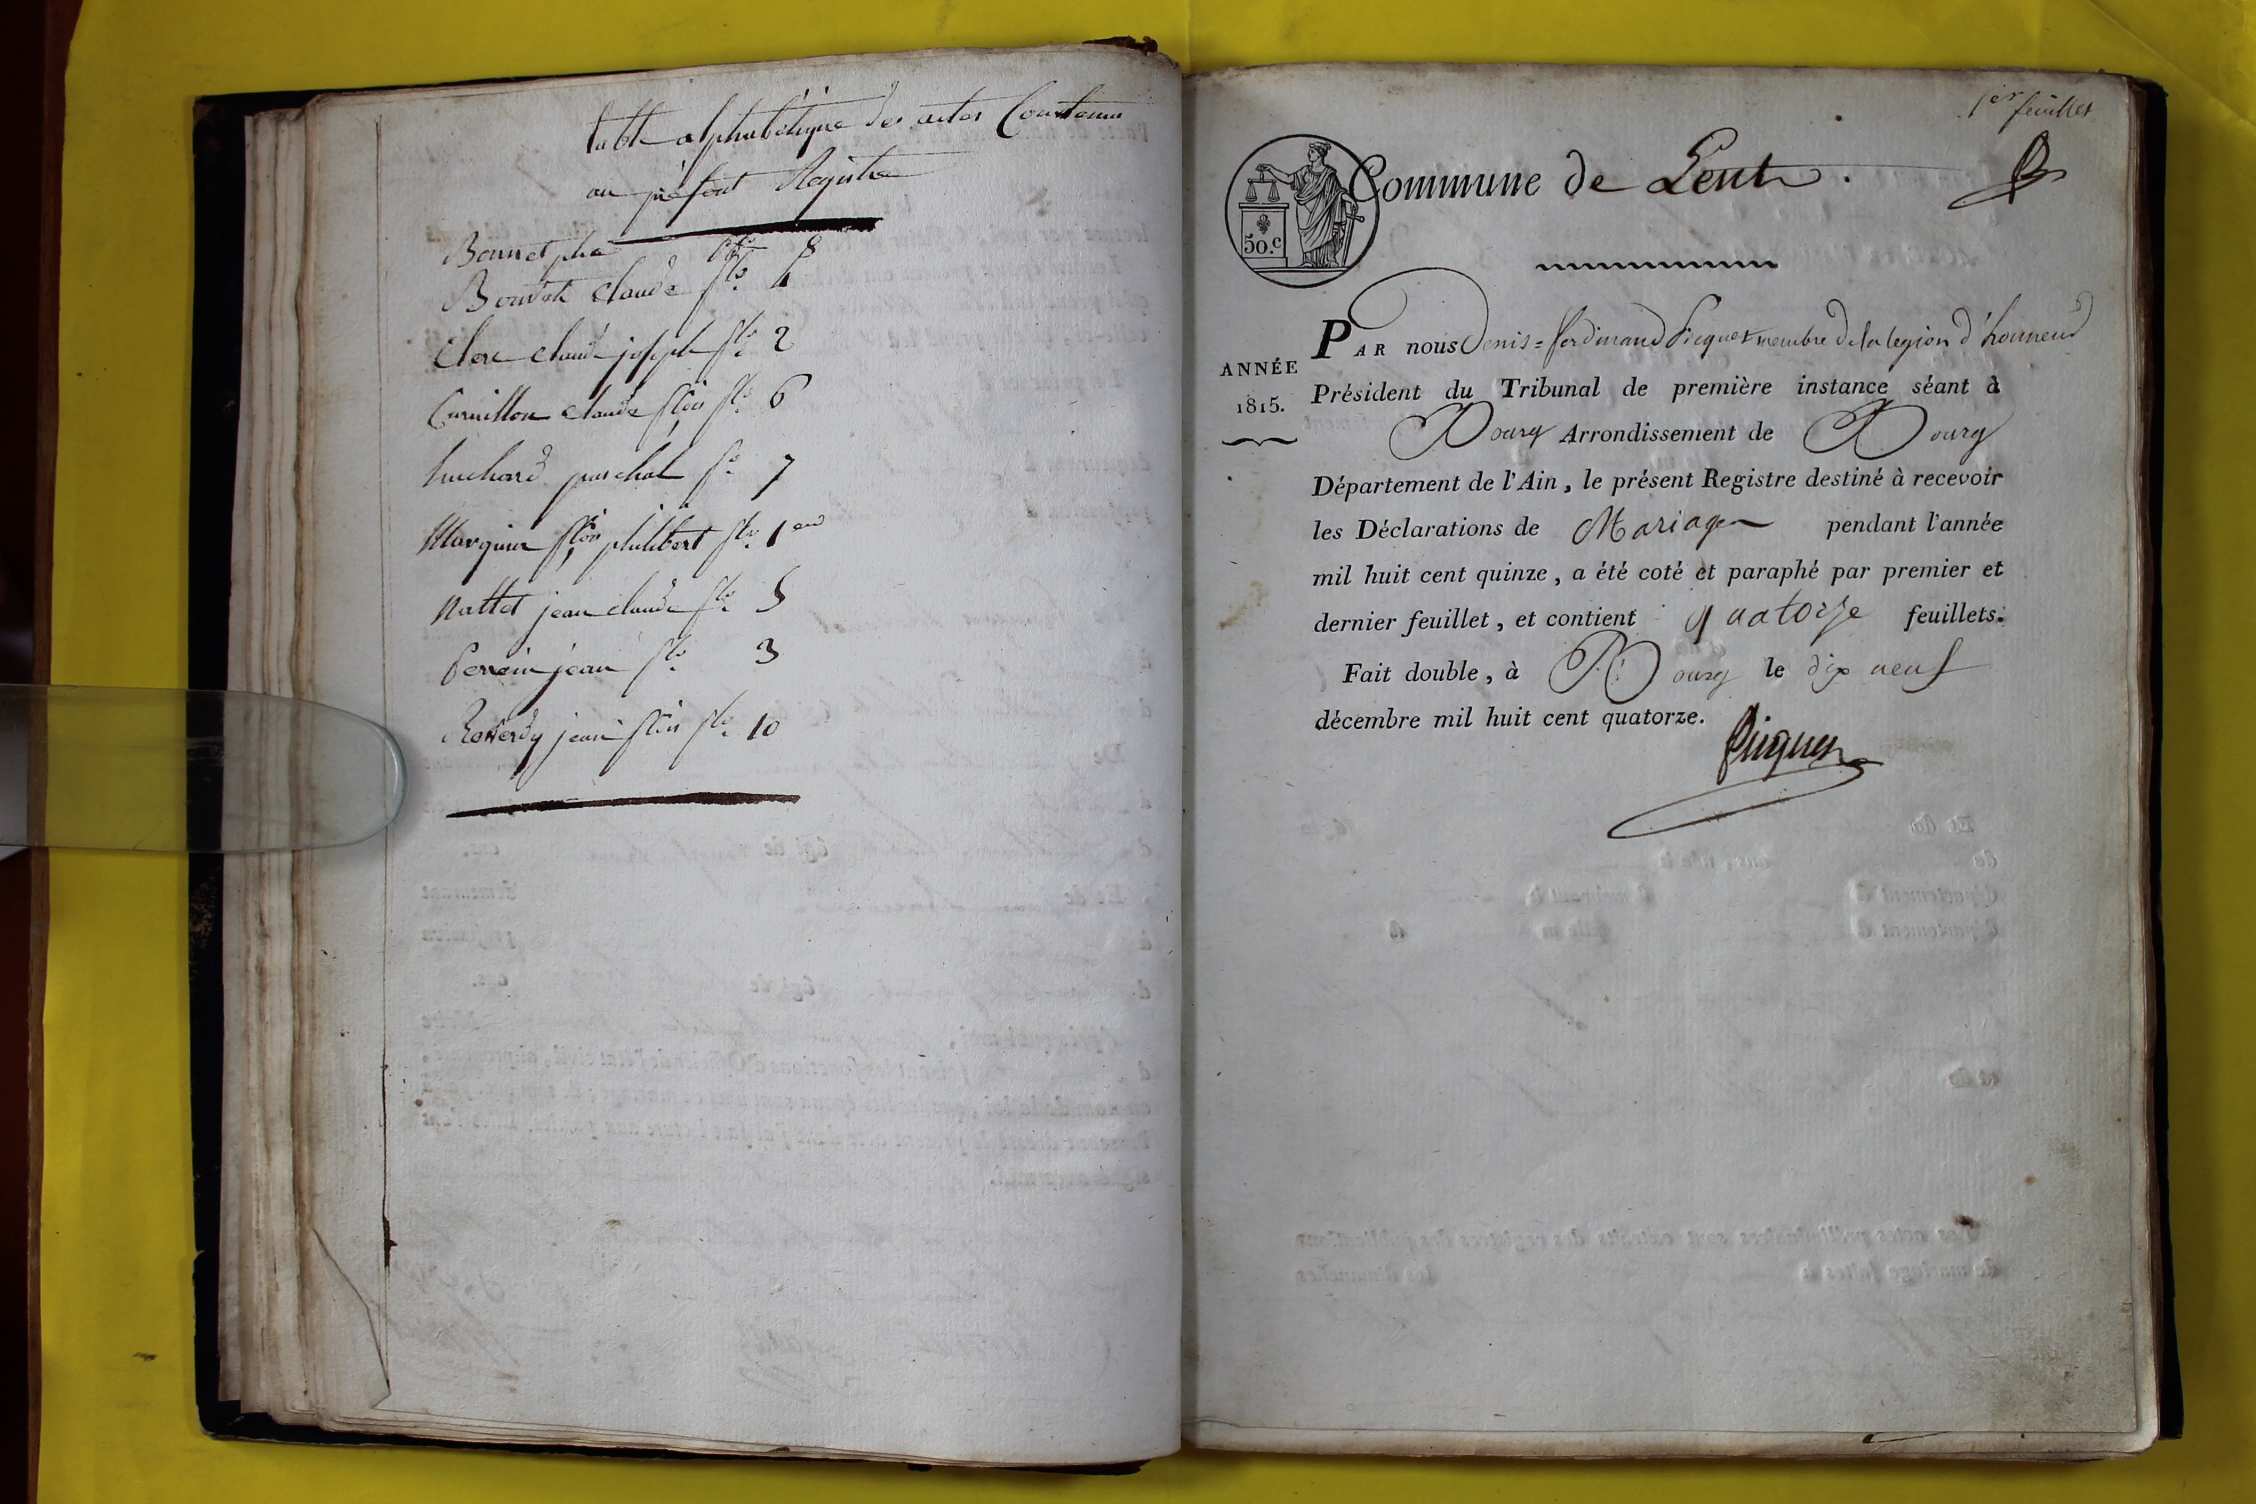 table alphabétique des actes Contenu
au présent Registre
Bonnet f.o 8
Bouvet claude f.o 4
Clerc claude joseph f.o 2
Curnillon claude f.çois f.o 6
huchard paschal f.o 7
Marguin f.çois philibert f.o 1er
Nallet jean claude f.o 5
Perrin jean f.o 3
jean f.çois f.o 10
1er feuillet
Commune de Lent
50.c
ANNÉE
1815.
PAR nous Denis-ferdinand Picquet membre de la legion d'honneur
Président du Tribunal de première instance séant à
Bourg Arrondissement de Bourg
Département de l'Ain, le présent Registre destiné à recevoir
les Déclarations de Mariage pendant l'année
mil huit cent quinze, a été coté et paraphé par premier et
dernier feuillet, et contient quatorze feuillets.
Fait double, à Bourg le dix neuf
décembre mil huit cent quatorze.
Picquet